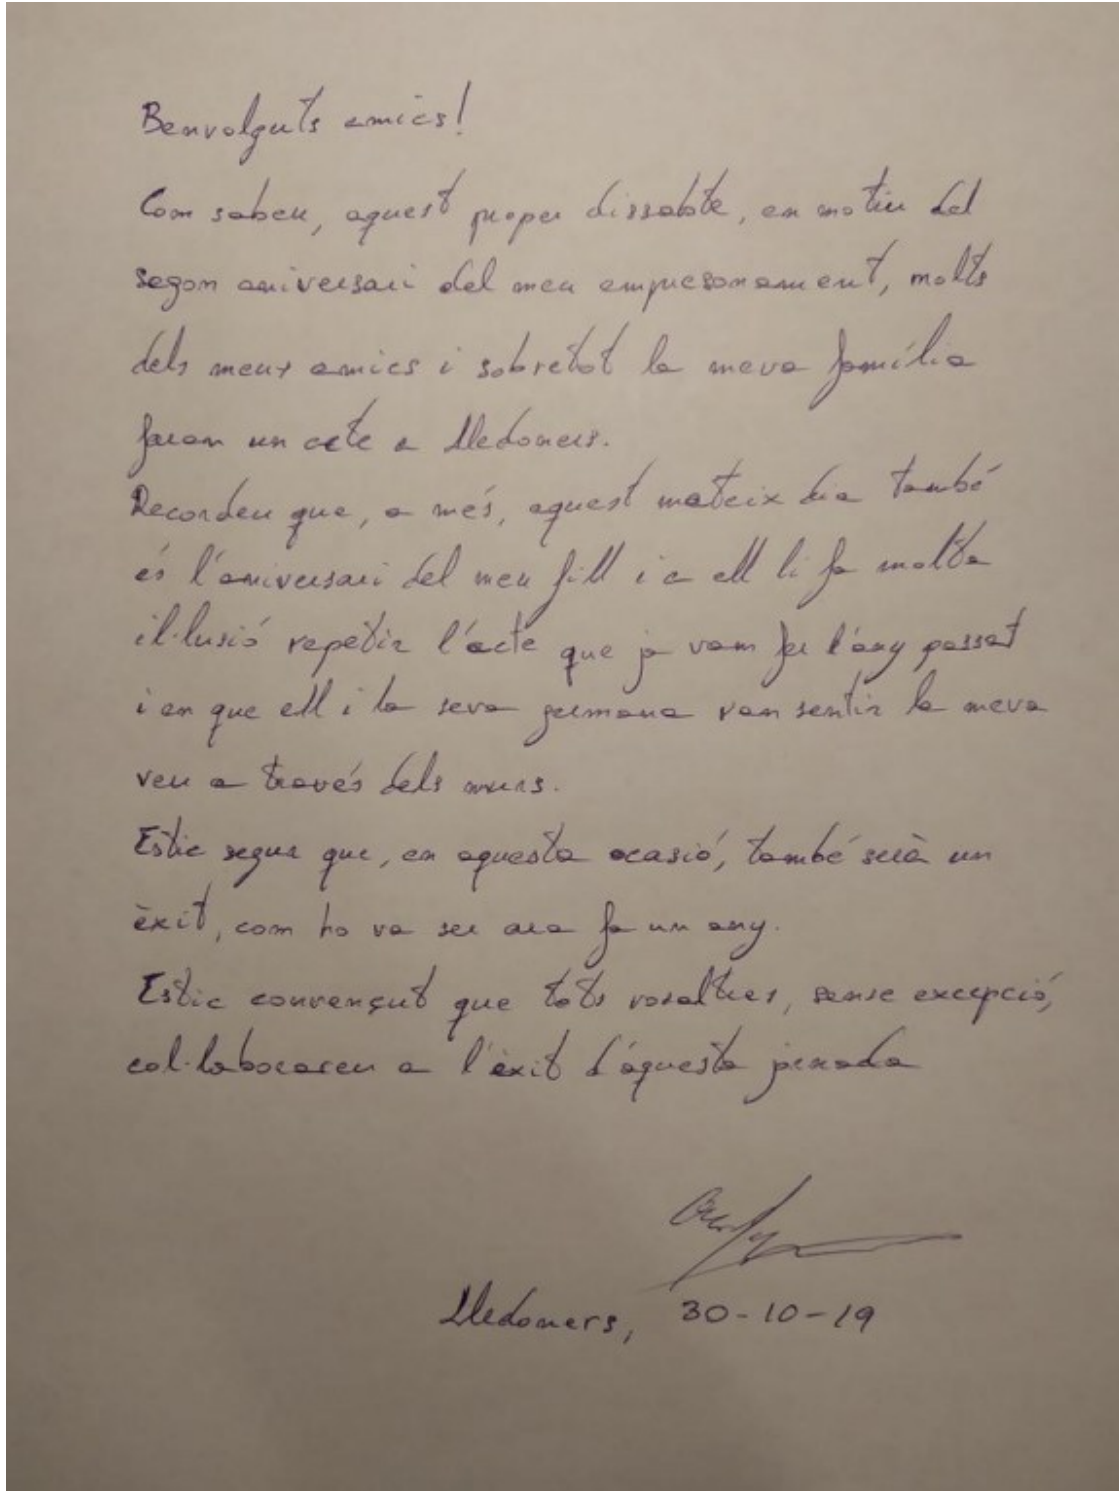 Benvolguts amics!
Com sabeu, aquest proper dissabte, en motiu del
segon aniversari del meu empresonament, molts
dels meus amics i sobretot la meva família
faran un acte a Lledoners.
Recordeu que, a més, aquest mateix dia també
és l'aniversari del meu fill i a ell li fa molta
il·lusió repetir l'acte que ja vam fer l'any passat
i en que ell i la seva germana van sentir la meva
veu a través dels murs.
Estic segur que, en aquesta ocasió, també serà un
èxit, com ho va ser ara fa un any.
Estic convençut que tots vosaltres, sense excepció,
col·laborareu a l'èxit d'aquesta jornada
Lledoners, 30-10-19